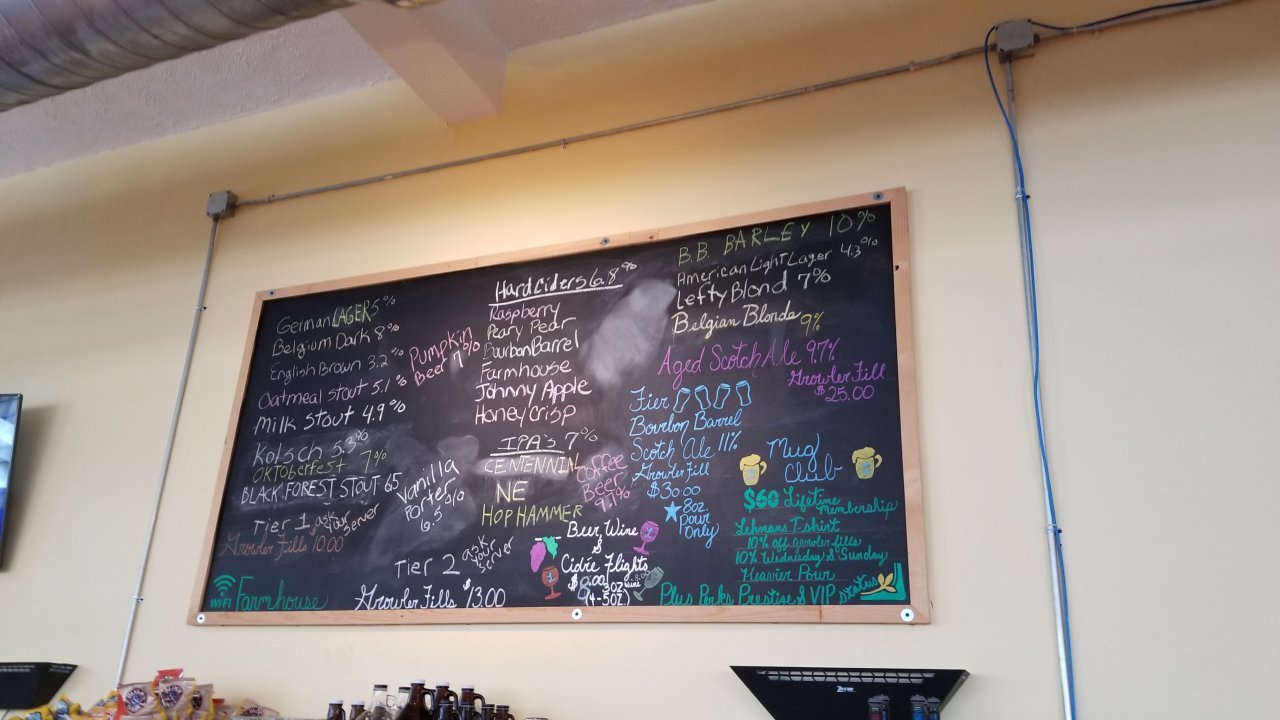 German LAGER 5%
Belgium Dark 8%
English Brown 3.2%
Oatmeal stout 5.1%
Milk Stout 4.9%
Kolsch 5.3%
OKTOberfest 7%
BLACK FOREST STOUT 6.5
Tier 1 ask your server
Growler Fills 10.00
WiFi Farmhouse
Pumpkin
Beer 7%
Vanilla
Porter
6.5%
Tier 2 ask your server
Growler Fills $13.00
Hard Ciders 6.8%
Raspberry
Peary Pear
Bourbon Barrel
Farmhouse
Johnny Apple
Honey Crisp
IPA's 7%
CENTENNIAL
NE
HOP HAMMER
Coffee
Beer
Beer, Wine
&
Cidre Flights
(4-5oz)
B.B. BARLEY 10%
American Light Lager 4.3%
Lefty Blond 7%
Belgian Blonde 9%
Aged Scotch Ale 9.7%
Growler Fill
$25.00
Tier
Bourbon Barrel
Scotch Ale 11%
Growler Fill
$30.00
8oz
Pour
Only
Mug
Club
$60 Lifetime
membership
Lehmans T-shirt
10% off Growler fills
10% Wednesday & Sunday
Heavier Pour
Plus Perks Prestige & VIP status